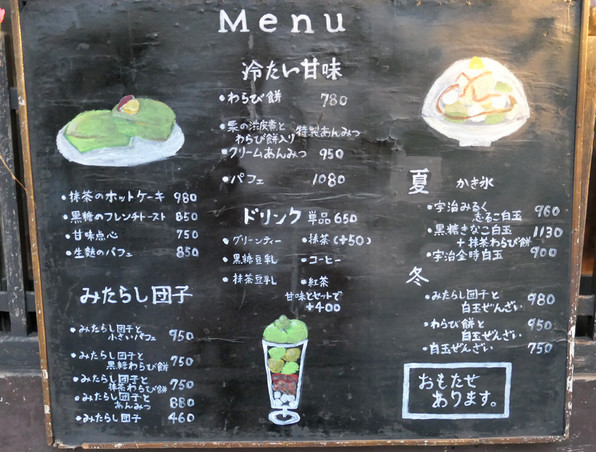 Menu
冷たい甘味
・わらび餅 780
・栗の渋皮煮と
わらび餅入り 特製あんみつ
・クリームあんみつ 950
・パフェ 1080
・抹茶のホットケーキ 980
・黒糖のフレンチトースト 850
・甘味点心 750
・生麩のパフェ 850
みたらし団子
・みたらし団子と
小さいパフェ 950
・みたらし団子と
黒糖わらび餅 750
・みたらし団子と
抹茶わらび餅 750
・みたらし団子と
あんみつ 880
・みたらし団子 460
ドリンク 単品650
・グリーンティー
・抹茶(+50)
・黒糖豆乳
・コーヒー
・抹茶豆乳
・紅茶
甘味とセットで
+400
夏 かき氷
・宇治みるく
しるこ白玉 960
・黒糖きなこ白玉
+抹茶わらび餅 1130
・宇治金時白玉 900
冬
・みたらし団子と
白玉ぜんざい 980
・わらび餅と
白玉ぜんざい 950
・白玉ぜんざい 750
おもたせ
あります。